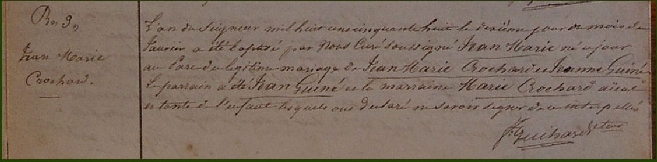 Jean Marie
Crochard.
L'an du Seigneur mil huit cent cinquante huit le dixième jour du mois de
Janvier a été baptisé par Nous Curé soussigné Jean Marie né ce jour
du légitime mariage de Jean Marie Crochard et Jeanne Guiné
le parrain a été Jean Guiné et la marraine Marie Crochard aïeul
et tante de l'enfant lesquels ont déclaré ne savoir signer de ce interpellés